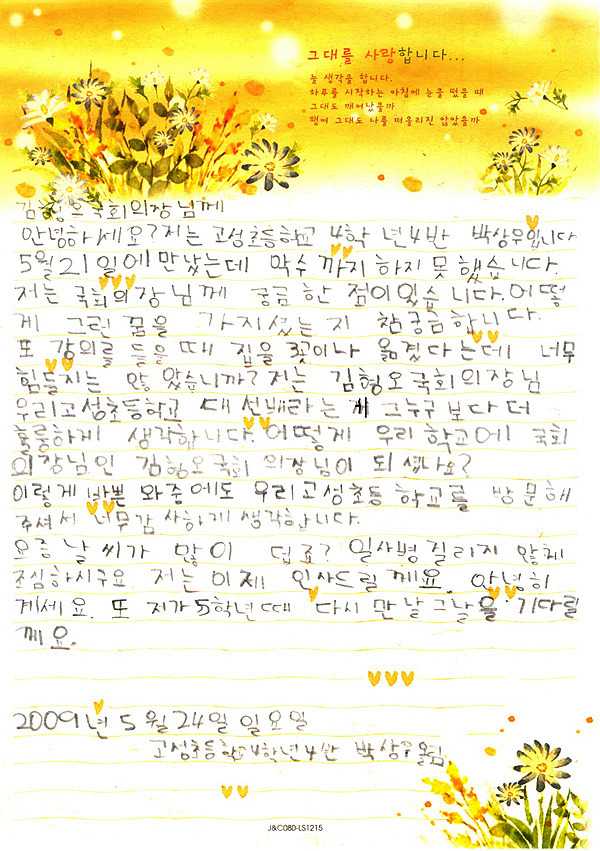 그대를 사랑합니다...
늘 생각을 합니다.
하루를 시작하는 아침에 눈을 떴을 때
그대도 깨어났을까
행여 그대도 나를 떠올리진 않았을까
김형오국회의장님께
안녕하세요? 저는 고성초등학교 4학년4반 박상우입니다
5월21일에 만났는데 악수 까지하지못했습니다.
저는 국회의장님께 궁금한점이있습니다. 어떻
게 그런 꿈을 가지셨는지 참궁금합니다.
또 강의를 들을때 집을 꽃이나 옮겼다는데 너무
힘들지는 않았습니까? 저는 김형오국회의장님
우리고성초등학교 대선배라는게 그누구보다더
훌륭하게 생각합니다. 어떻게 우리학교에 국회
의장님인 김형오국회의장님이 되셨나요?
이렇게 바쁜 와중에도 우리고성초등학교를 방문해
주셔서 너무감사하게생각합니다.
요즘날씨가 많이 덥죠? 일사병 질리지 않체
조심하시구요. 저는 이제 인사드릴께요. 안녕히
계세요. 또 저가5학년때 다시만날그날을 기다릴
께요.
2009년 5월24일 일요일
고성초등학교4학년4반 박상우올림.
J&C080-LS1215